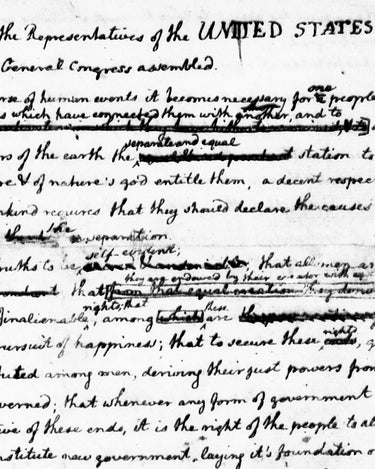 the Representatives of the UNITED STATES
General Congress assembled.
one
rse of human events it becomes necessary for people
s which have connected them with another, and to
separate and equal
rs of the earth the station to
re & of nature's god entitle them, a decent respec
nkind requires that they should declare the causes
the separation.
self-evident;
ruths to be that all men ar
they are endowed by their creator with
that from that equal creation they
rights; that
inalienable, among which are
these
rights
ursuit of happiness; that to secure these
tuted among men, deriving their just powers from
verned; that whenever any form of government
ive of these ends, it is the right of the people to al
nstitute new government, laying it's foundation o